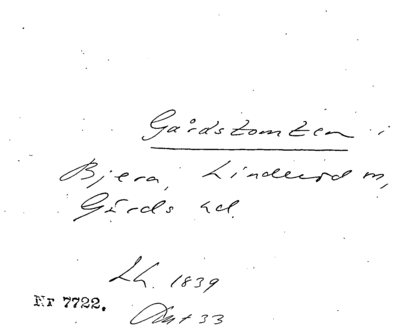 Gårdstomten i
Bjera, Linderöd sn,
Gärds hd.
Lh. 1839
Nr 7722.
33